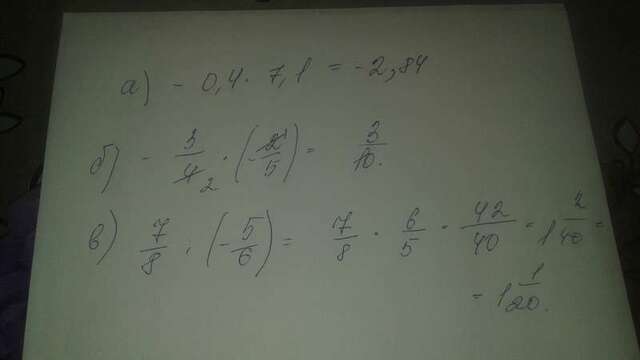 а) - 0,4 · 7,1 = -2,84
б) - 3/4 2 · (-2 1/5) = 3/10.
в) 7/8 : (-5/6) = 7/8 · 6/5 · 42/40 = 1 2/40 =
= 1 1/20.